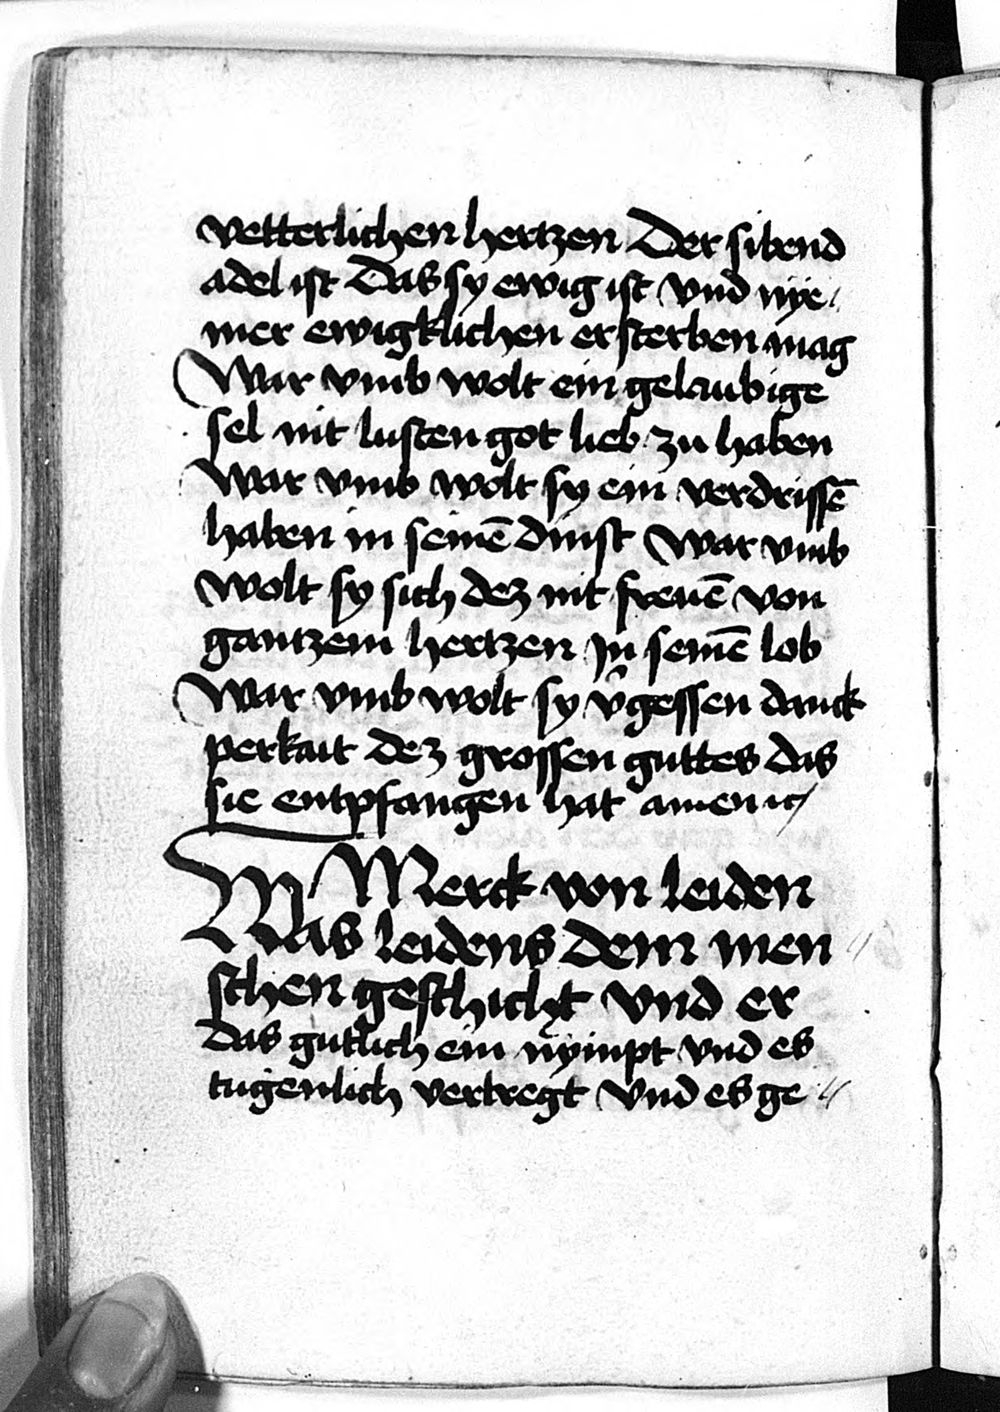 vetterlichen hertzen Der sibend
adel ist Das sy ewig ist vnd nÿe/
mer ewigklichen ersterben mag
War vmb wolt ein gelaubige
sel nit lusten got lieb zu haben
War vmb wolt sy ein verdrissē
haben in seinē dinst War vmb
wolt sy sich dez nit freuē von
gantzem hertzen Jn seinē lob
War vmb wolt sy v᷑gessen danck
perkait dez grossen guttes das
sie entpfangen hat amen ꝛc/
Merck von leiden
Was leidens dem men //
schen geschicht vnd er
das gutlich ein nÿmpt vnd es
tugenlich vertregt Vnd es ge //